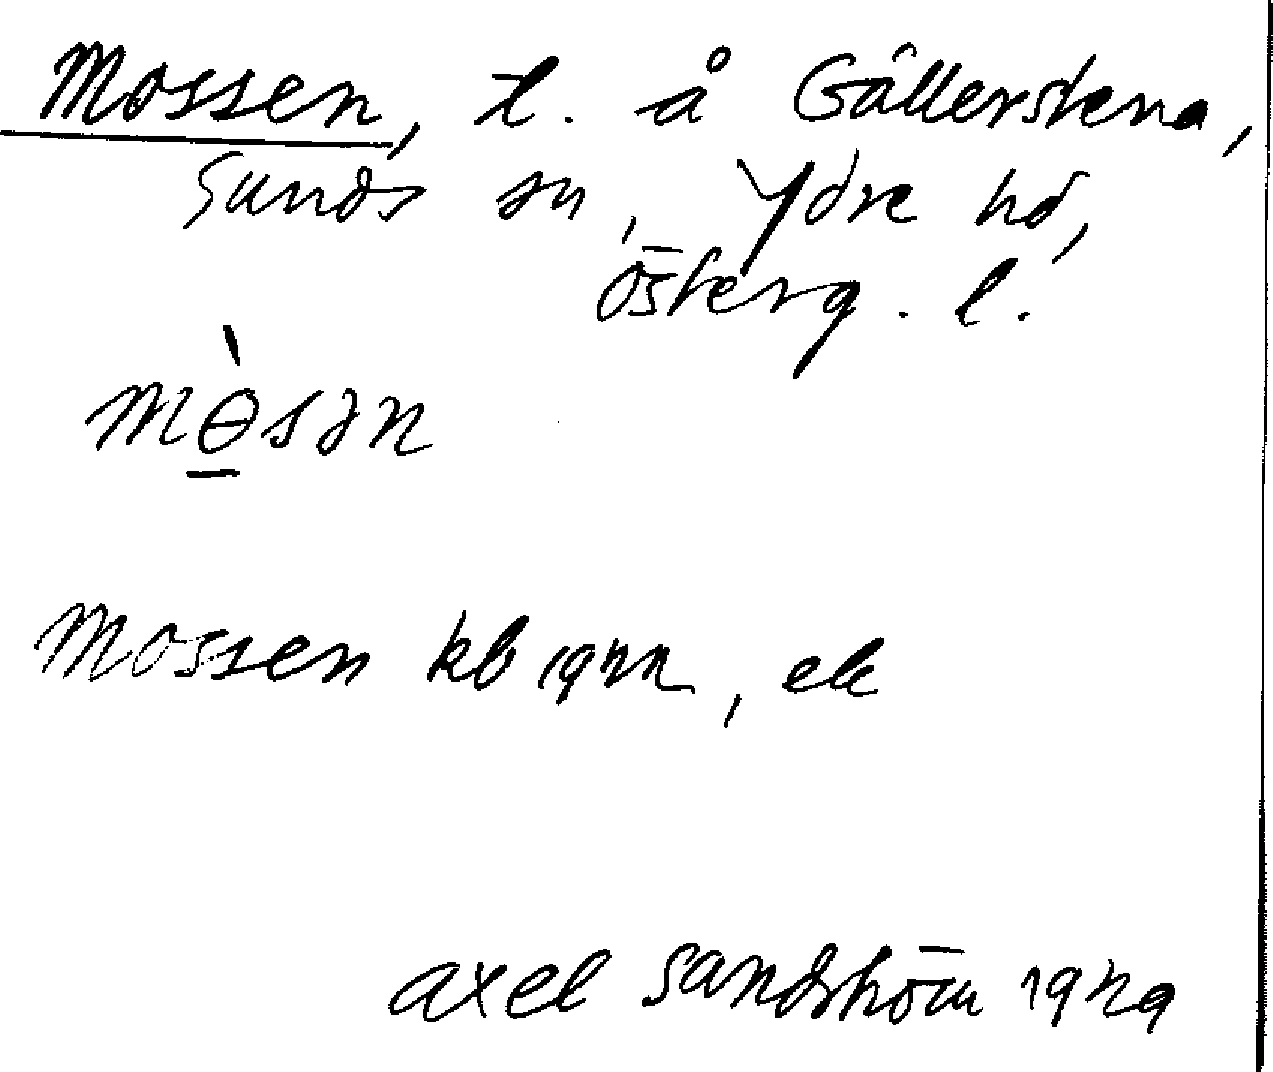 Mossen, t. å Gällerstena,
Sunds sn, Ydre hd,
Österg. l.
mòsən
Mossen kb 1922, ek
Axel Sandström 1929